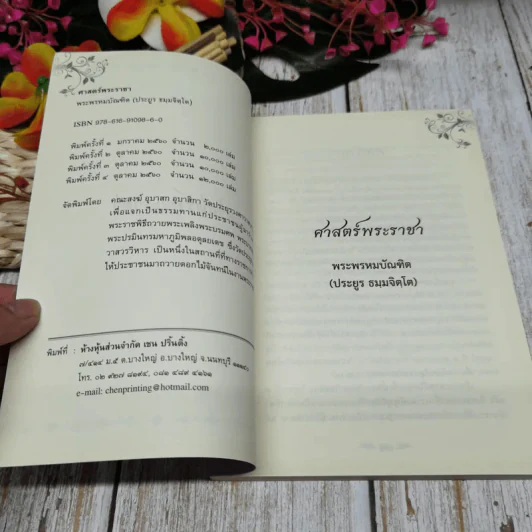 ศาสตร์พระราชา
พระพรหมบัณฑิต (ประยูร ธมฺมจิตฺโต)
ISBN 978-616-91098-6-0
พิมพ์ครั้งที่ ๑ มกราคม ๒๕๖๐ จำนวน ๒,๐๐๐ เล่ม
พิมพ์ครั้งที่ ๒ ตุลาคม ๒๕๖๐ จำนวน ๑๐,๐๐๐ เล่ม
พิมพ์ครั้งที่ ๓ ตุลาคม ๒๕๖๐ จำนวน ๑๐,๐๐๐ เล่ม
พิมพ์ครั้งที่ ๔ ตุลาคม ๒๕๖๐ จำนวน ๑๒,๐๐๐ เล่ม
จัดพิมพ์โดย คณะสงฆ์ อุบาสก อุบาสิกา
เพื่อแจกเป็นธรรมทานแก่ประชาชน
พระราชพิธีถวายพระเพลิงพระบรมศพ
พระปรมินทรมหาภูมิพลอดุลยเดช
วาสวรวิหาร เป็นหนึ่งในสถานที่ที่ทาง
ให้ประชาชนมาถวายดอกไม้จันทน์ใน
พิมพ์ที่ : ห้างหุ้นส่วนจำกัด เชน ปริ้นติ้ง
๗/๔๑๔ ม.๕ ต.บางใหญ่ อ.บางใหญ่ จ.นนทบุรี
โทร. ๐๒ ๙๒๗ ๘๑๙๔, ๐๘๑ ๔๘๙ ๔๑๖๑
e-mail: chenprinting@hotmail.com
ศาสตร์พระราชา
พระพรหมบัณฑิต
(ประยูร ธมฺมจิตฺโต)